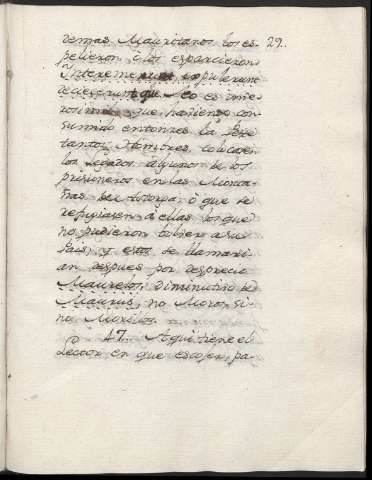 demas Mauritanos los es- 29.
pelieron ò los esparcieron
Interemerunt expulerunt
deiecerunt que. No es inve-
rosimil que haviendo con-
sumido entonces la
tantos Hombres, colocase
los Legados algunos de los
prisioneros en las Monta-
ñas de Astorga, ò que se
refugiasen à ellas los que
no pudieron bolver a su
Pais, y estos se llamari-
an despues por desprecio
Maurelos, diminutivo de
Maurus, no Moros, si-
no Morillos.
47. Aqui tiene el
Lector en que escojer, pa-